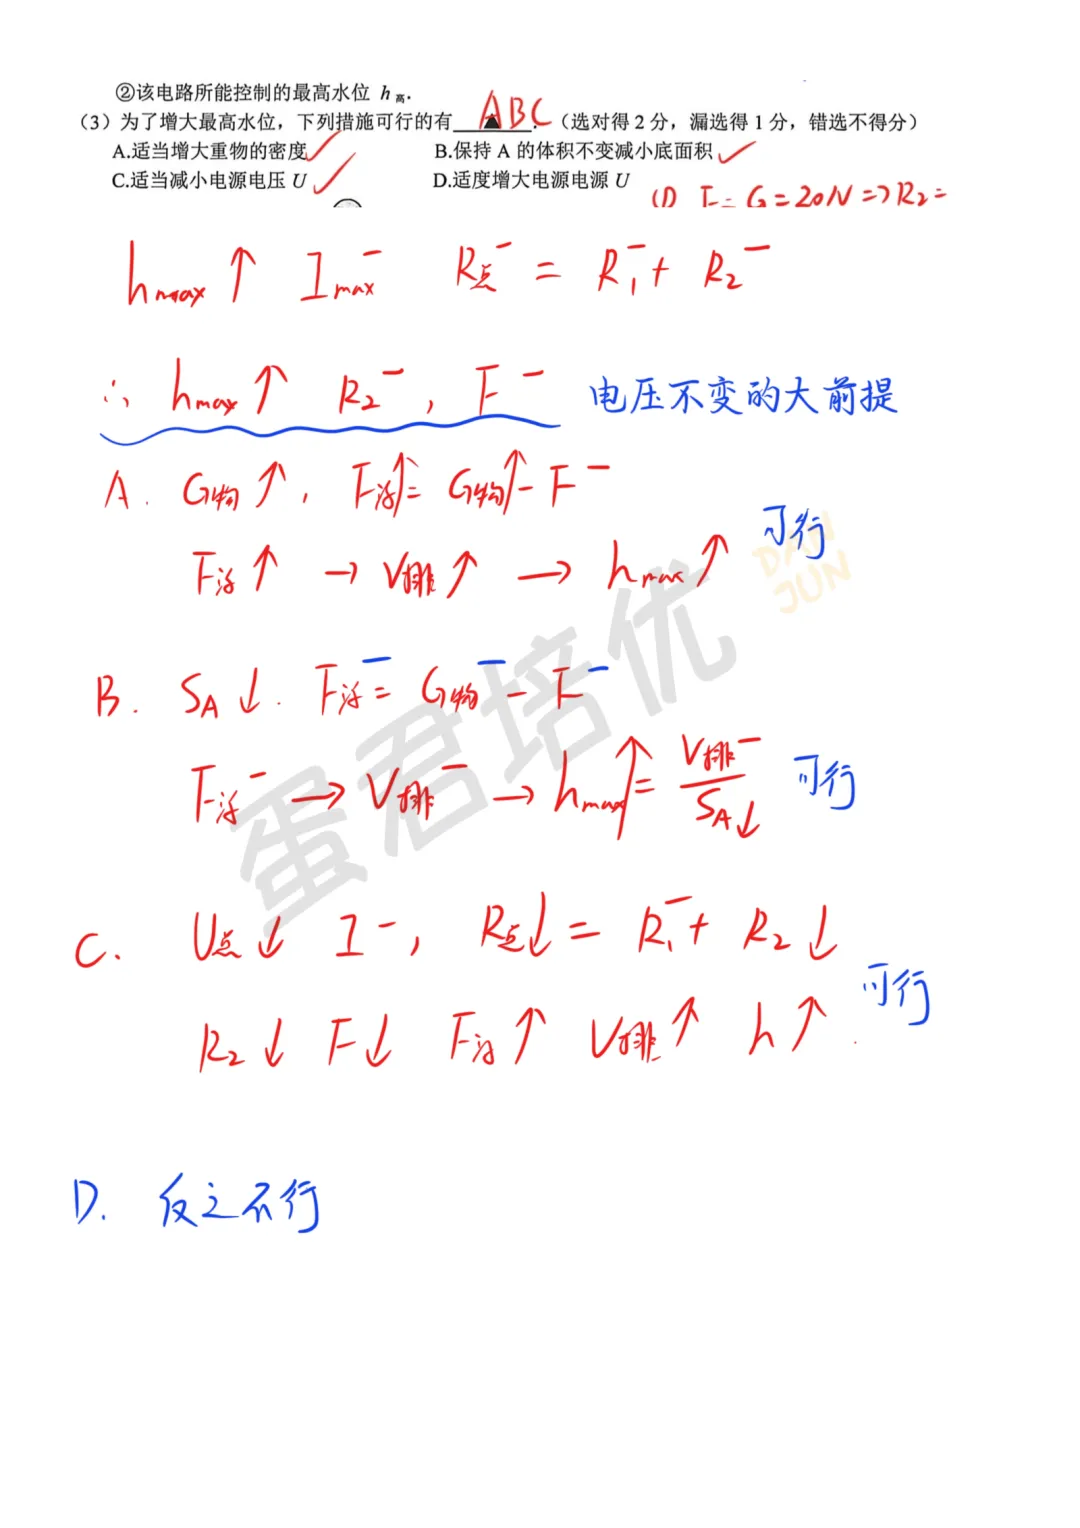 ②该电路所能控制的最高水位 h高.
(3)为了增大最高水位，下列措施可行的有 ABC .（选对得 2 分，漏选得 1 分，错选不得分）
A.适当增大重物的密度 B.保持 A 的体积不变减小底面积
C.适当减小电源电压 U D.适度增大电源电源 U
(1) F = G = 20N => R₂ =
hmax ↑ Imax⁻ R总⁻ = R₁⁻ + R₂⁻
∴ hmax ↑ R₂⁻, F⁻ 电压不变的大前提
A. G物↑, F浮↑ = G物↑ - F⁻
F浮↑ → V排↑ → hmax↑ 可行
DAN
JUN
蛋君培优
B. SA↓. F浮⁻ = G物⁻ - F⁻
F浮⁻ → V排⁻ → hmax↑ = V排⁻/SA↓ 可行
C. U总↓ I⁻, R总↓ = R₁⁻ + R₂↓
R₂↓ F↓ F浮↑ V排↑ h↑. 可行
D. 反之不行